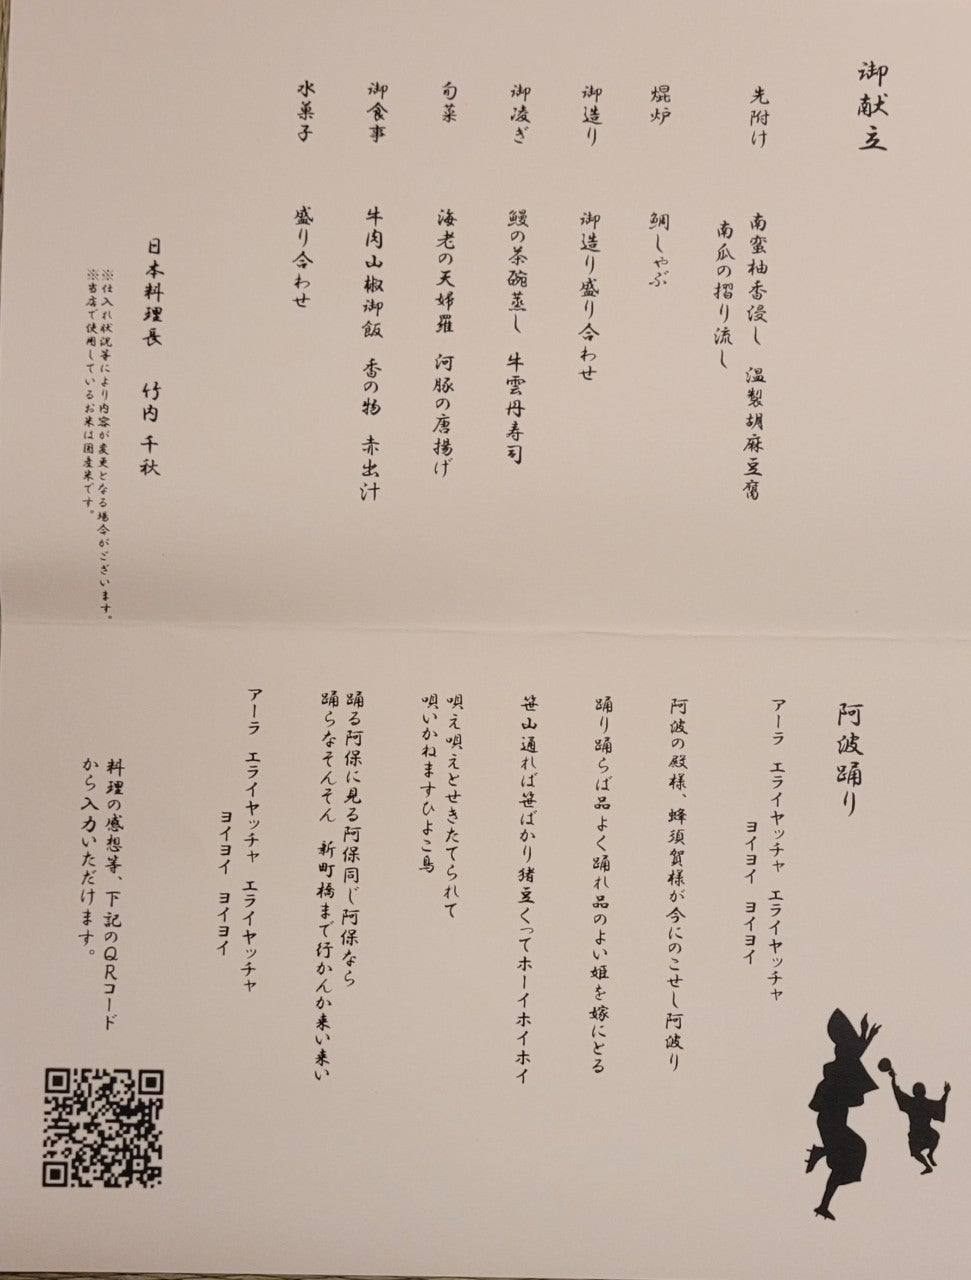 御献立
先附け　南蛮柚香浸し　温製胡麻豆腐
南瓜の摺り流し
焜炉　鯛しゃぶ
御造り　御造り盛り合わせ
御凌ぎ　鰻の茶碗蒸し　牛雲丹寿司
旬菜　海老の天婦羅　河豚の唐揚げ
御食事　牛肉山椒御飯　香の物　赤出汁
水菓子　盛り合わせ
日本料理長　竹内 千秋
※仕入れ状況等により内容が変更となる場合がございます。
※当店で使用しているお米は国産米です。
阿波踊り
アーラ　エライヤッチャ　エライヤッチャ
ヨイヨイ　ヨイヨイ
阿波の殿様、蜂須賀様が今にのこせし阿波り
踊り踊らば品よく踊れ品のよい姫を嫁にとる
笹山通れば笹ばかり猪豆くってホーイホイホイ
唄え唄えとせきたてられて
唄いかねますひよこ鳥
踊る阿保に見る阿保同じ阿保なら
踊らなそんそん　新町橋まで行かんか来い来い
アーラ　エライヤッチャ　エライヤッチャ
ヨイヨイ　ヨイヨイ
料理の感想等、下記のＱＲコード
から入力いただけます。